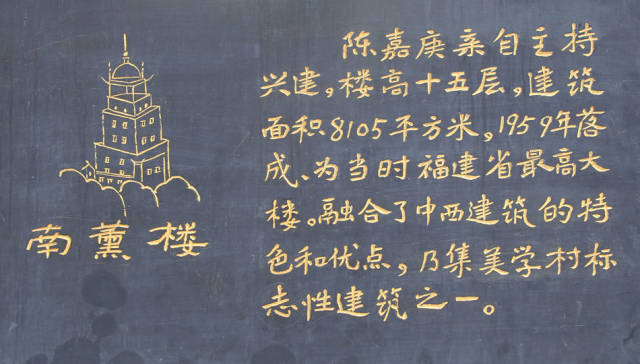 陈嘉庚亲自主持
兴建,楼高十五层,建筑
面积8105平方米,1959年落
成、为当时福建省最高大
楼。融合了中西建筑的特
色和优点,乃集美学村标
志性建筑之一。
南薰楼